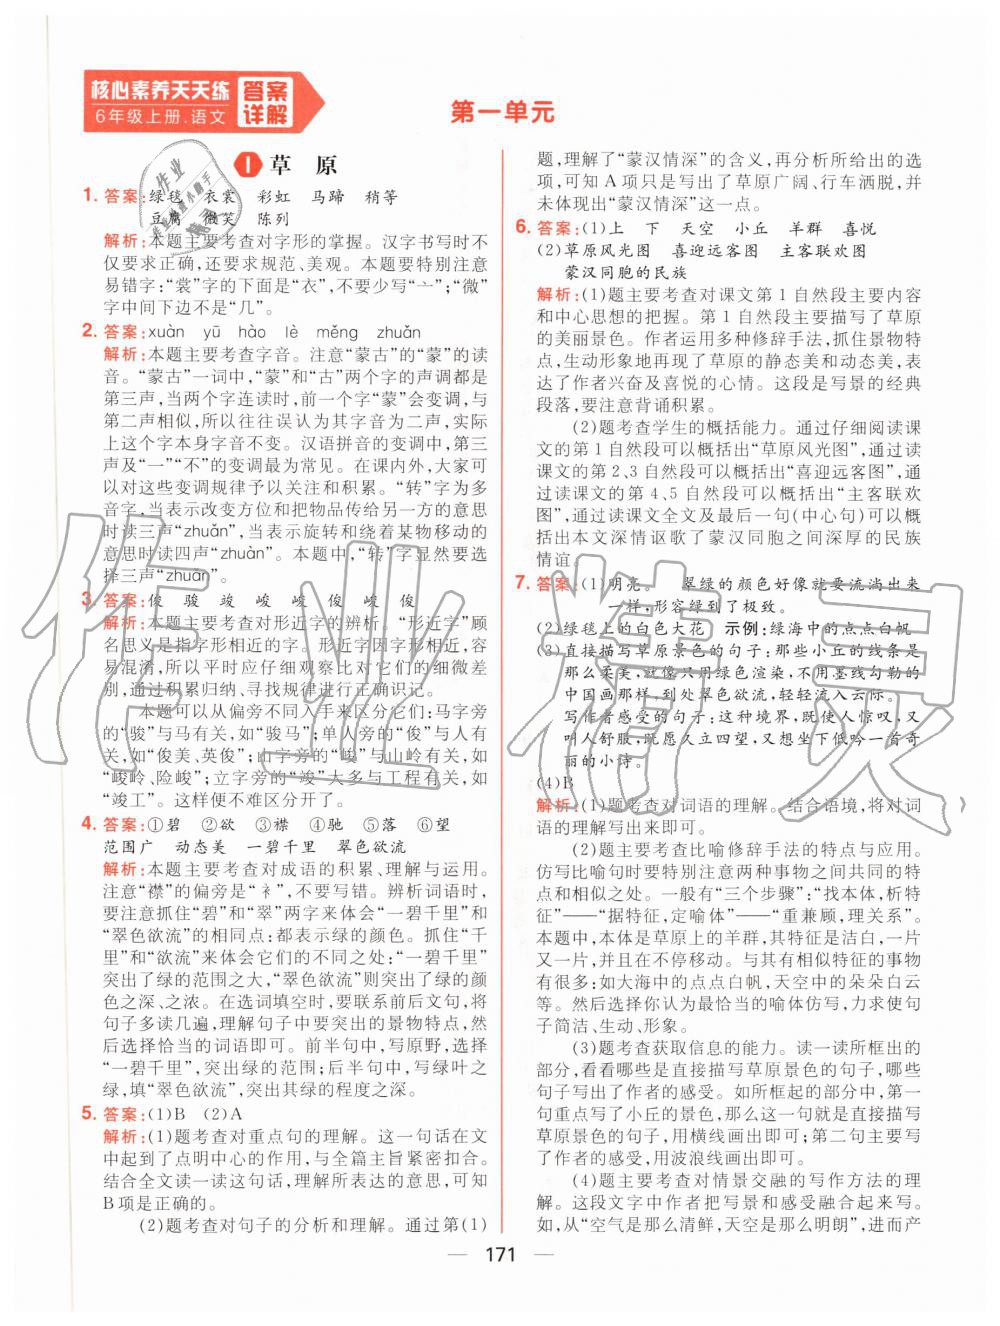 核心素养天天练
6年级上册.语文
答案
详解
第一单元
1 草 原
1. 答案:绿毯 衣裳 彩虹 马蹄 稍等
豆腐 微笑 陈列
解析:本题主要考查对字形的掌握。汉字书写时不
仅要求正确,还要求规范、美观。本题要特别注意
易错字:“裳”字的下面是“衣”,不要少写“亠”;“微”
字中间下边不是“几”。
2. 答案:xuàn yū hào lè měng zhuǎn
解析:本题主要考查字音。注意“蒙古”的“蒙”的读
音。“蒙古”一词中,“蒙”和“古”两个字的声调都是
第三声,当两个字连读时,前一个字“蒙”会变调,与
第二声相似,所以往往误认为其字音为二声,实际
上这个字本身字音不变。汉语拼音的变调中,第三
声及“一”“不”的变调最为常见。在课内外,大家可
以对这些变调规律予以关注和积累。“转”字为多
音字,当表示改变方位和把物品传给另一方的意思
时读三声“zhuǎn”,当表示旋转和绕着某物移动的
意思时读四声“zhuàn”。本题中,“转”字显然要选
择三声“zhuǎn”。
3. 答案:俊 骏 竣 峻 峻 俊 峻 俊
解析:本题主要考查对形近字的辨析。“形近字”顾
名思义是指字形相近的字。形近字因字形相近,容
易混淆,所以平时应仔细观察比对它们的细微差
别,通过积累归纳、寻找规律进行正确识记。
本题可以从偏旁不同入手来区分它们:马字旁
的“骏”与马有关,如“骏马”;单人旁的“俊”与人有
关,如“俊美、英俊”;山字旁的“峻”与山岭有关,如
“峻岭、险峻”;立字旁的“竣”大多与工程有关,如
“竣工”。这样便不难区分开了。
4. 答案:①碧 ②欲 ③襟 ④驰 ⑤落 ⑥望
范围广 动态美 一碧千里 翠色欲流
解析:本题主要考查对成语的积累、理解与运用。
注意“襟”的偏旁是“衤”,不要写错。辨析词语时,
要注意抓住“碧”和“翠”两字来体会“一碧千里”和
“翠色欲流”的相同点:都表示绿的颜色。抓住“千
里”和“欲流”来体会它们的不同之处:“一碧千里”
突出了绿的范围之大,“翠色欲流”则突出了绿的颜
色之深、之浓。在选词填空时,要联系前后文句,将
句子多读几遍,理解句子中要突出的景物特点,然
后选择恰当的词语即可。前半句中,写原野,选择
“一碧千里”,突出绿的范围之大;后半句中,写绿叶之
绿,填“翠色欲流”,突出其绿的程度之深。
5. 答案:(1)B (2)A
解析:(1)题考查对重点句的理解。这一句话在文
中起到了点明中心的作用,与全篇主旨紧密扣合。
结合全文读一读这句话,理解所表达的意思,可知
B项是正确的。
(2)题考查对句子的分析和理解。通过第(1)
题,理解了“蒙汉情深”的含义,再分析所给出的选
项,可知A项只是写出了草原广阔、行车洒脱,并
未体现出“蒙汉情深”这一点。
6. 答案:(1)上 下 天空 小丘 羊群 喜悦
(2)草原风光图 喜迎远客图 主客联欢图
蒙汉同胞的民族
解析:(1)题主要考查对课文第1自然段主要内容
和中心思想的把握。第1自然段主要描写了草原
的美丽景色。作者运用多种修辞手法,抓住景物特
点,生动形象地再现了草原的静态美和动态美,表
达了作者兴奋及喜悦的心情。这段是写景的经典
段落,要注意背诵积累。
(2)题考查学生的概括能力。通过仔细阅读课
文的第1自然段可以概括出“草原风光图”,通过读
课文的第2、3自然段可以概括出“喜迎远客图”,通
过读课文的第4、5自然段可以概括出“主客联欢
图”,通过读课文全文及最后一句(中心句)可以概
括出本文深情讴歌了蒙汉同胞之间深厚的民族
情谊。
7. 答案:(1)明亮。 翠绿的颜色好像就要流淌出来
一样,形容绿到了极致。
(2)绿毯上的白色大花 示例:绿海中的点点白帆
(3)直接描写草原景色的句子:那些小丘的线条是
那么柔美,就像只用绿色渲染,不用墨线勾勒的
中国画那样,到处翠色欲流,轻轻流入云际。
写作者感受的句子:这种境界,既使人惊叹,又
叫人舒服,既愿久立四望,又想坐下低吟一首奇
丽的小诗。
(4)B
解析:(1)题考查对词语的理解。结合语境,将对词
语的理解写出来即可。
(2)题主要考查比喻修辞手法的特点与应用。
仿写比喻句时要特别注意两种事物之间共同的特
点和相似之处。一般有“三个步骤”:“找本体,析特
征”——“据特征,定喻体”——“重兼顾,理关系”。
本题中,本体是草原上的羊群,其特征是洁白,一片
又一片,并且在不停移动。与其有相似特征的事物
有很多:如大海中的点点白帆,天空中的朵朵白云
等。然后选择你认为最恰当的喻体仿写,力求使句
子简洁、生动、形象。
(3)题考查获取信息的能力。读一读所框出的
部分,看看哪些是直接描写草原景色的句子,哪些
句子写出了作者的感受。如所框起的部分中,第一
句重点写了小丘的景色,那么这一句就是直接描写
草原景色的句子,用横线画出即可;第二句主要写
了作者的感受,用波浪线画出即可。
(4)题主要考查对情景交融的写作方法的理
解。这段文字中作者把写景和感受融合起来写。
如,从“空气是那么清鲜,天空是那么明朗”,进而产
171
作业精灵